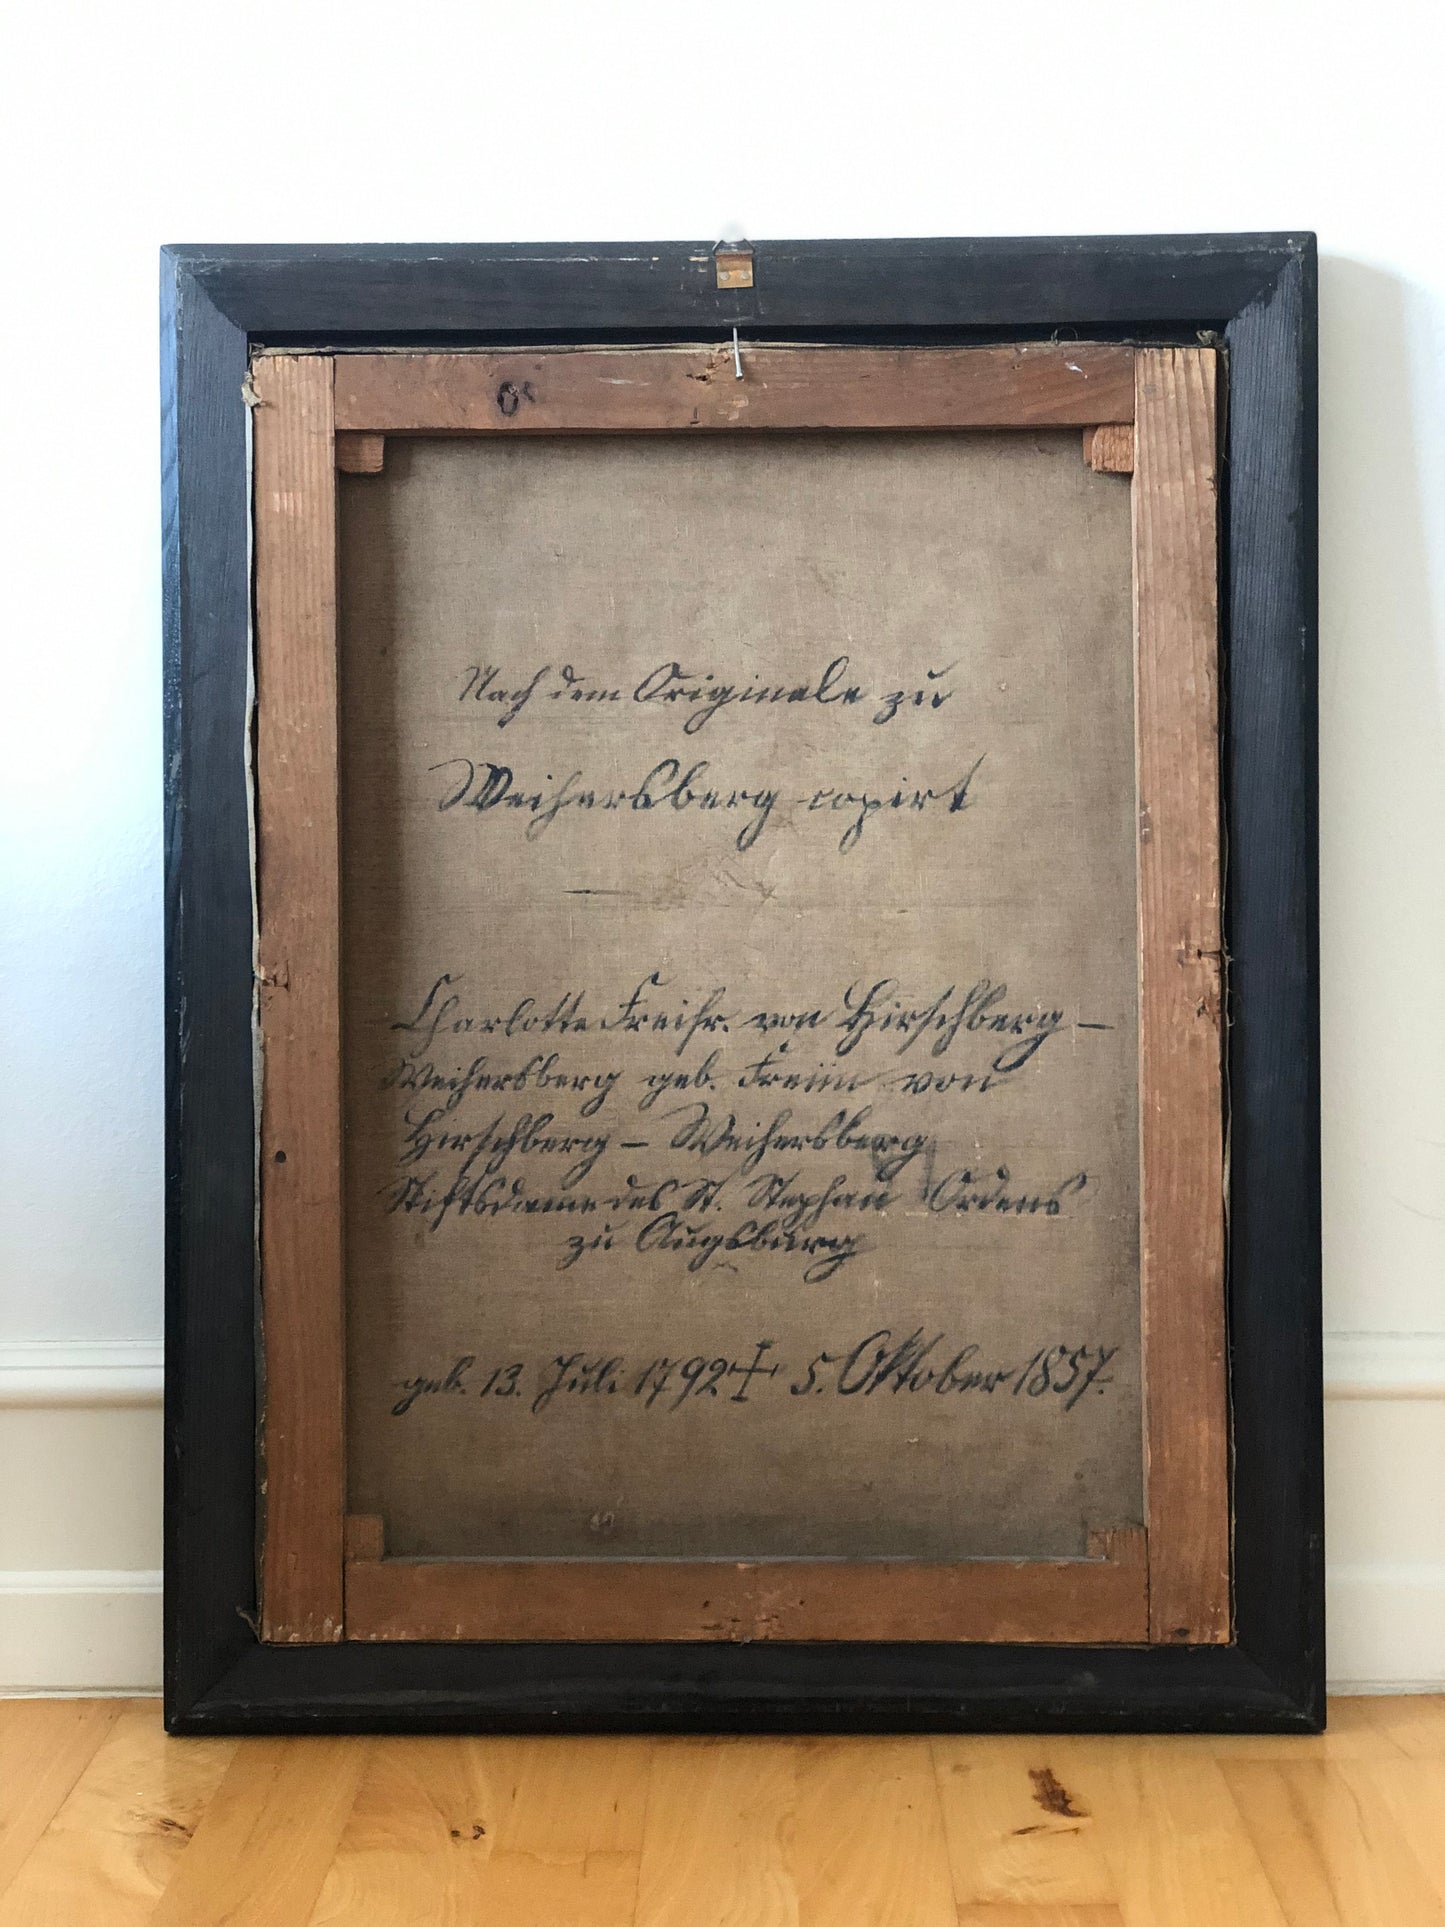 Nach dem Originale zu
Weihersberg copirt
Charlotte Freifr. von Hirschberg –
Weihersberg geb. Freiin von
Hirschberg – Weihersberg
Stiftsdame des St. Stephan Ordens
zu Augsburg
geb. 13. Juli 1792 ✝ 5. Oktober 1857.